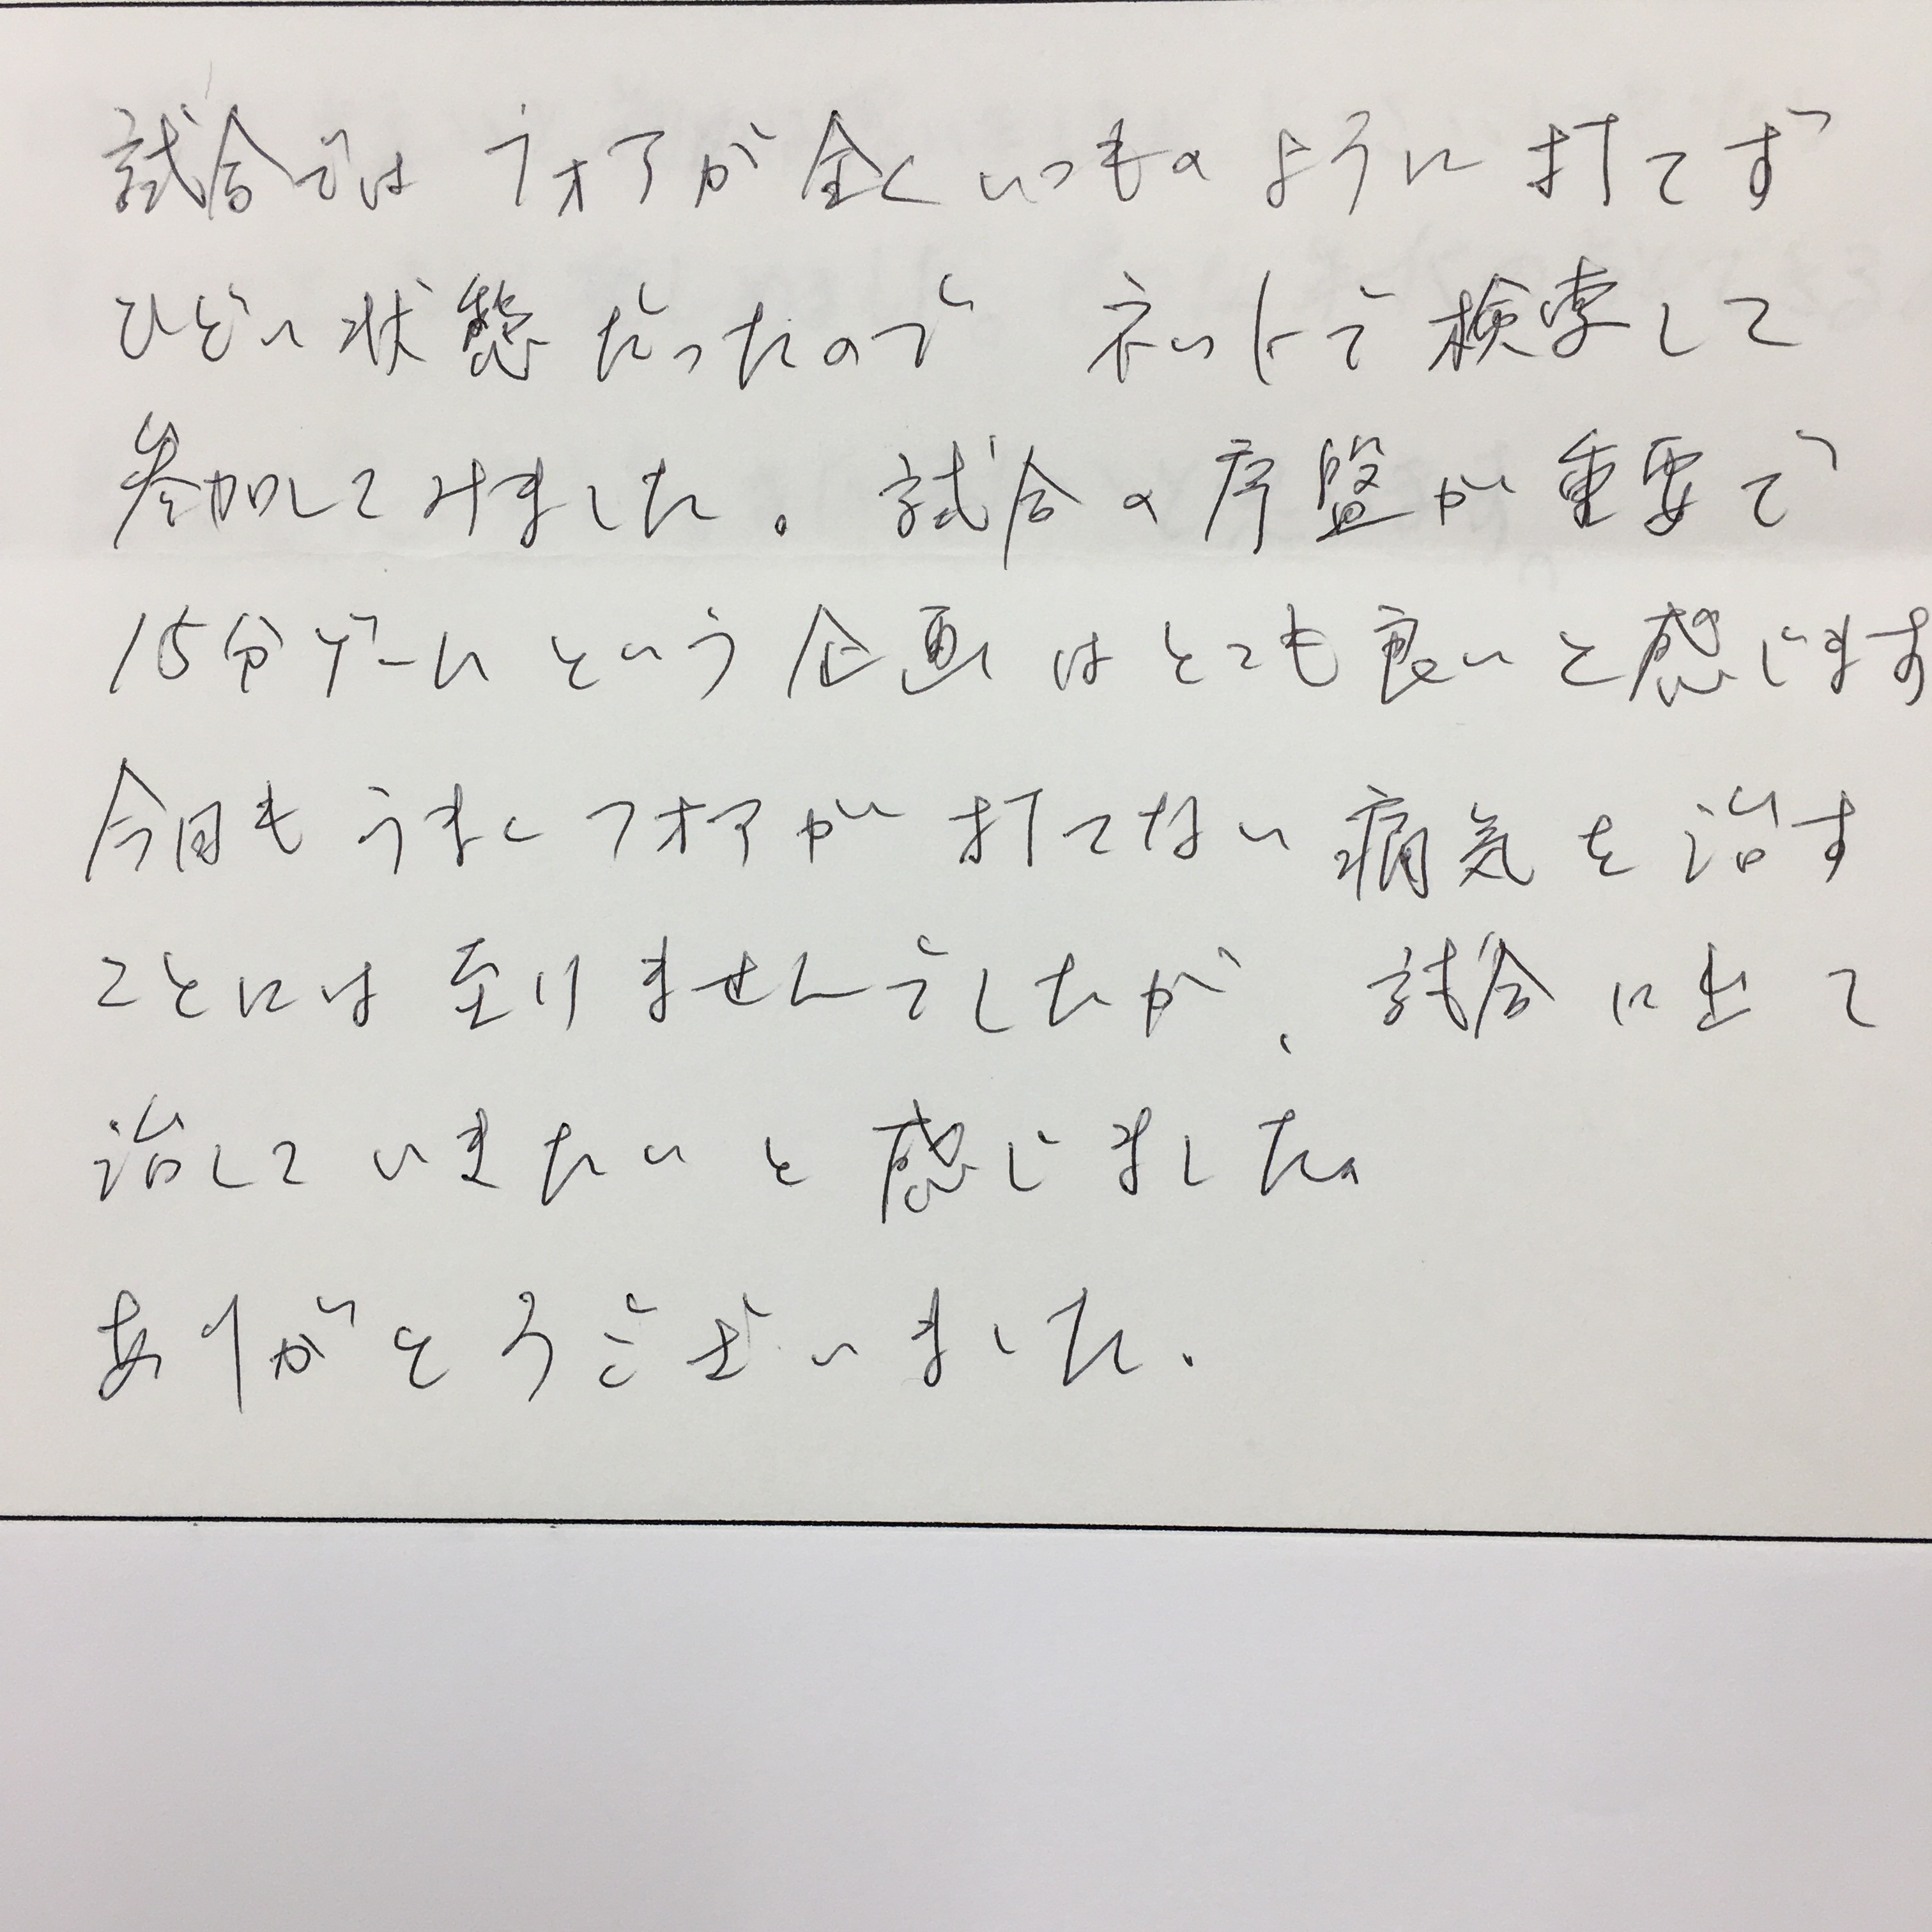 試合では フォアが全くいつものように打てず
ひどい状態だったので ネットで検索して
参加してみました。試合の序盤が重要で
15分ゲームという企画はとても良いと感じます
今回もうまくフォアが打てない病気を治す
ことには至りませんでしたが、試合に出て
治していきたいと感じました。
ありがとうございました.